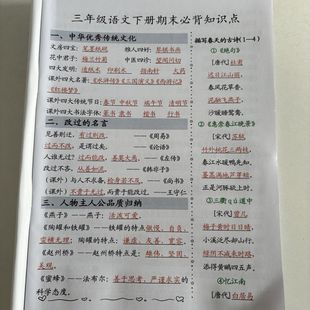 三年级语文下册期末必背知识点
一、中华优秀传统文化
文房四宝：笔墨纸砚 雅人四好：琴棋书画
花中君子：梅兰竹菊 中医四诊：望闻问切
四大发明：造纸术 印刷术 指南针 火药
课外四大名著：《三国演义》《西游记》
《红楼梦》
课外四大传统节日：春节 清明节 端午节 中秋节
课外四大书法字体：篆书 隶书 楷书 行书
二、改过的名言
见善则迁，有过则改。——《周易》
过而不改，是谓过矣。——《论语》
人谁无过？过而能改，善莫大焉。——《左传》
改过不吝，从善如流。——《韩非子》
（课外）与人不求备，检身若不及。——《尚书》
（课外）不贵于无过，而贵于能改过。——王守仁
三、人物主人公品质归纳
《燕子》——燕子：活泼可爱。
《陶罐和铁罐》——铁罐的特点：傲慢、自负、
蛮横无理；陶罐的特点：谦虚、友善、宽容。
《赵州桥》——赵州桥的特点是：雄伟、坚固、
美观。
《蜜蜂》——法布尔：善于思考，严谨求实的
科学态度。
描写春天的古诗(1—4)
①《绝句》
[唐代]杜甫
迟日江山丽，
春风花草香。
泥融飞燕子，
沙暖睡鸳鸯。
②《惠崇春江晚景》
[宋代]苏轼
竹外桃花三两枝，
春江水暖鸭先知。
蒌蒿满地芦芽短，
正是河豚欲上时。
③三衢道中
[宋代]曾几
梅子黄时日日晴，
小溪泛尽却山行。
绿阴不减来时路，
添得黄鹂四五声。
④忆江南
[唐代]白居易